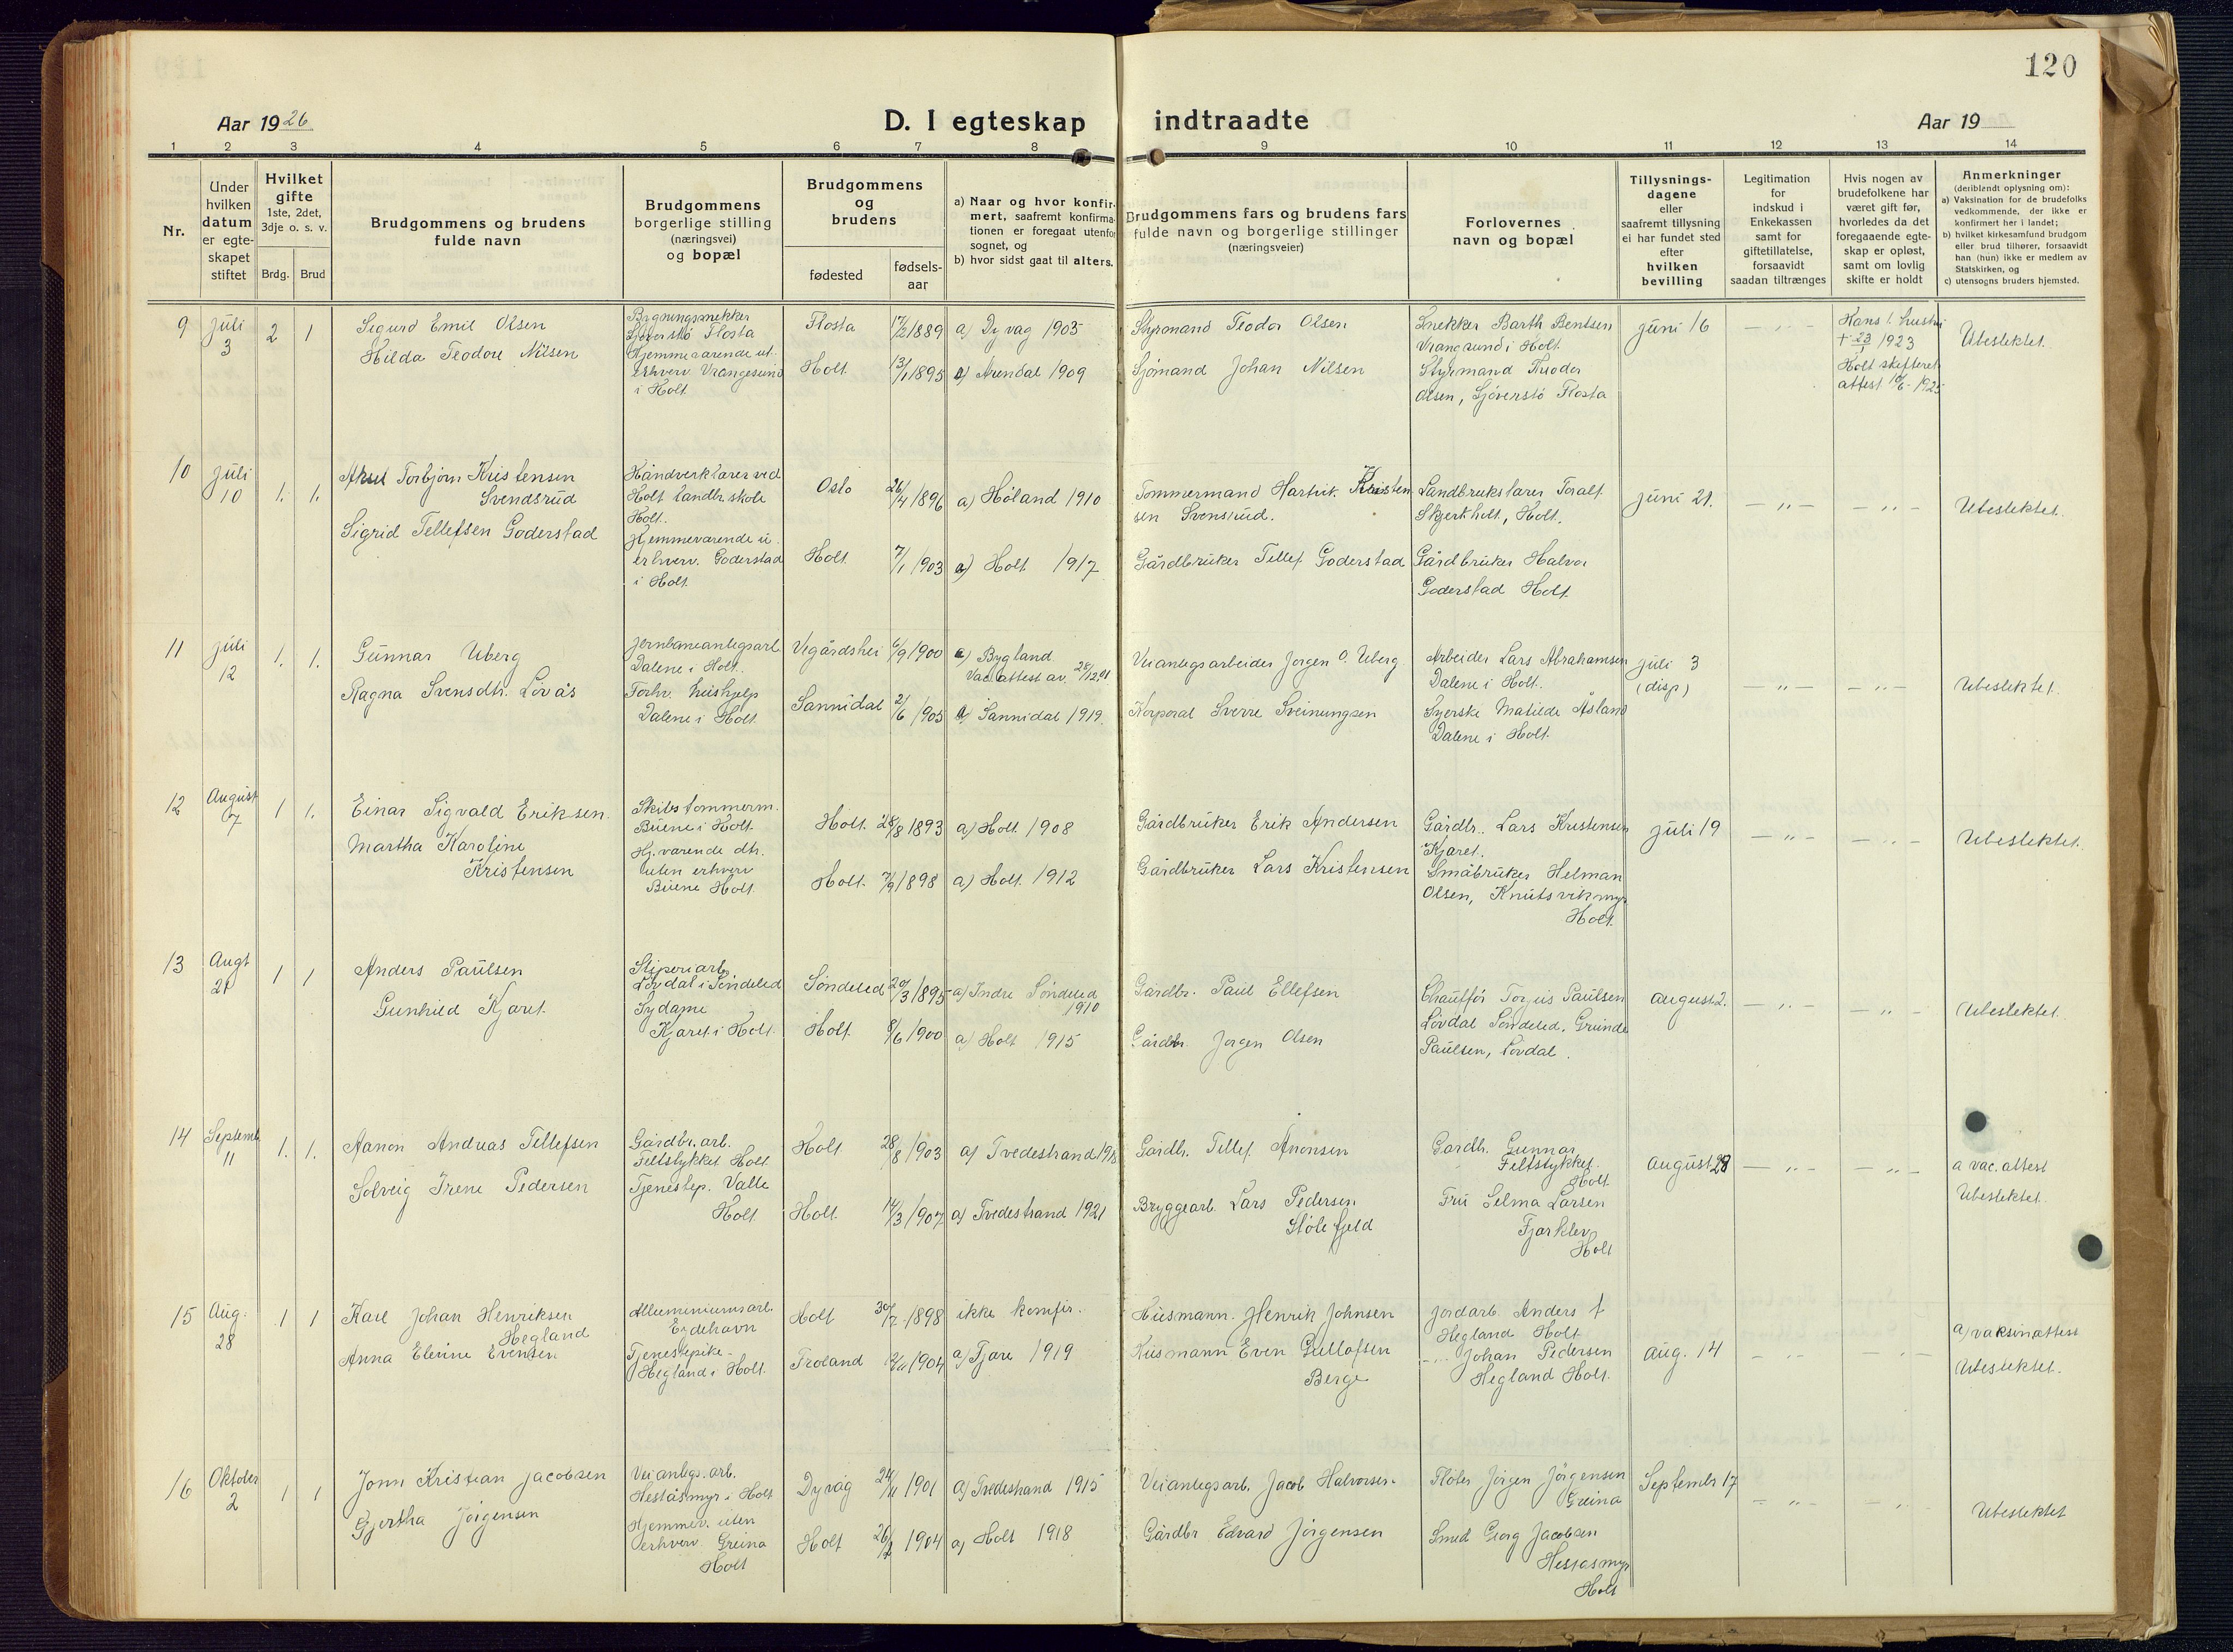 120
Aar 1926
D. I egteskap indtraadte
Aar 19
1 2 3 4 5 6 7 8 9 10 11 12 13 14
Nr.
Under
hvilken
datum
er egte-
skapet
stiftet
Hvilket
gifte
1ste, 2det,
3dje o. s. v.
Brdg. Brud
Brudgommens og brudens
fulde navn
Brudgommens
borgerlige stilling
(næringsvei)
og bopæl
Brudgommens
og
brudens
fødested
fødsels-
aar
a) Naar og hvor konfir-
mert, saafremt konfirma-
tionen er foregaat utenfor
sognet, og
b) hvor sidst gaat til alters.
Brudgommens fars og brudens fars
fulde navn og borgerlige stillinger
(næringsveier)
Forlovernes
navn og bopæl
Tillysnings-
dagene
eller
saafremt tillysning
ei har fundet sted
efter
hvilken
bevilling
Legitimation
for
indskud i
Enkekassen
samt for
giftetillatelse,
forsaavidt
saadan tiltrænges
Hvis nogen av
brudefolkene har
været gift før,
hvorledes da det
foregaaende egte-
skap er opløst,
samt om lovlig
skifte er holdt
Anmerkninger
(deriblandt oplysning om):
a) Vaksination for de brudefolks
vedkommende, der ikke er
konfirmert her i landet;
b) hvilket kirkesamfund brudgom
eller brud tilhører, forsaavidt
han (hun) ikke er medlem av
Statskirken, og
c) utensogns bruders hjemsted.
9
Juli
3
2 1
Sigurd Emil Olsen
Hilda Teodore Nilsen
Bygningssnekker
Sjøverstö Flosta
Hjemmevarende ut.
erhverv Vrangesund
i Holt.
Flosta 17/2 1889 a) Dyvag 1905
Holt. 13/1 1895 a) Arendal 1909
Styrmand Teodor Olsen
Sjømand Johan Nilsen
Snekker Barth Bentsen
Vrangsund i Holt.
Styrmand Theodor
Olsen, Sjöverstö Flosta
juni 16
— „ —
Hans 1. hustru
+ 23/1 1923
Holt skifteret
attest 10/6 - 1925
Ubeslektet.
10
Juli
10
1. 1.
Aksel Torbjørn Kristensen
Svendsrud
Sigrid Tellefsen Goderstad
Håndverklærer ved
Holt landbr.skole
Holt.
Hjemmevarende u.
erhverv. Goderstad
i Holt.
Oslo 26/4 1896 a) Høland 1910
Holt. 7/1 1903 a) Holt 1917
Tømmermand Hartvik Kristen
sen Svensrud.
Gårdbruker Tellef Goderstad
Landbrukslærer Toralf
Skjerkholt, Holt.
Gårdbruker Halvor
Goderstad Holt.
juni 21.
— „ — — „ —
Ubeslektet.
11
Juli
12
1. 1.
Gunnar Uberg
Ragna Svensdtr. Livås
Jernbaneanlegsarb.
Dalene i Holt.
Forhv. hushjelp
Dalene i Holt
Vegårdshei 6/9 1900 a) Bygland
Vac. attest av 28/12 01
Sannidal 21/6 1905 a) Sannidal 1919.
Veianlegsarbeider Jørgen O. Uberg.
Korporal Sverre Sveinungsen
Arbeider Lars Abrahamsen
Dalene i Holt.
Syerske Matilde Åsland
Dalene i Holt.
juli 3
(disp)
— „ — — „ —
Ubeslektet.
12
August
7
1 1.
Einar Sigvald Eriksen.
Martha Karoline
Kristensen
Skibstømmerm.
Buene i Holt.
Hj.varende dtr.
uten erhverv
Buene Holt.
Holt. 28/8 1893 a) Holt. 1908
Holt. 7/9 1898 a) Holt. 1912
Gårdbruker Erik Andersen
Gårdbruker Lars Kristensen
Gårdbr. Lars Kristensen
Kjæret.
Småbruker Helman
Olsen, Knutsvikmyr
Holt.
juli 19
— „ — — „ —
Ubeslektet.
13
Augt
21
1 1
Anders Paulsen
Gunhild Kjæret.
Sliperiarb.
Løvdal i Søndeled
Sydame
Kjæret i Holt.
Søndeled 20/3 1895 a) Indre Søndeled
1910
Holt. 8/6 1900 a) Holt 1915
Gårdbr. Paul Ellefsen
Gårdbr. Jørgen Olsen
Chauffør Torjus Paulsen
Løvdal Søndeled. Grunde
Paulsen, Løvdal.
august 2.
— „ — — „ —
Ubeslektet.
14
Septemb.
11
1. 1.
Aanon Andreas Tellefsen
Solveig Irene Pedersen
Gårdbr. arb.
Feltstykket Holt
Tjenestep. Valle
Holt.
Holt. 28/8 1903 a) Tvedestrand 1918
Holt. 14/3 1907 a) Tvedestrand 1921
Gårdbr. Tellef Anonsen
Bryggearb. Lars Pedersen
Stölefjeld
Gardbr. Gunnar
Feltstykket.
Holt
Fru Selma Larsen
Fjærkleiv
Holt
August 28
— „ — — „ —
a vac. attest
Ubeslektet.
15
Aug.
28
1 1
Karl Johan Henriksen
Hegland
Anna Elerine Evensen
Alluminiumsarb.
Eydehavn
Tjenestepike -
Hegland i Holt.
Holt 30/7 1898 ikke komfir.
Froland 12/11 1904 a) Fjære 1919
Husmann. Henrik Johnsen
Husmann Even Gullofsen
Berge
Jordarb. Anders J.
Hegland Holt
- „ - Johan Pedersen
Hegland Holt.
aug. 14
— „ — — „ —
a) vaksinattest
Ubeslektet.
16
Oktober
2
1 1
Jonn Kristian Jacobsen
Gjertha Jörgensen
Veianlegs. arb.
Heståsmyr i Holt
Hjemmev. uten
erhverv Greina
Holt
Dyvåg 24/11 1901 a) Tvedestrand 1915
Holt 26/2 1904 a) Holt 1918
Veianlegsarb. Jacob Halvorsen
Gårdbr Edvard Jörgensen
Fløter Jörgen Jörgensen
Greina
Smed Georg Jacobsen
Hestasmyr
Holt
September 17
— „ — — „ —
Ubeslektet